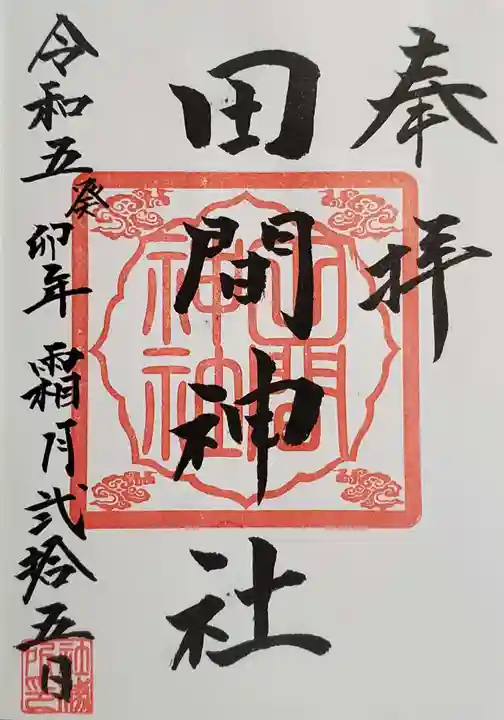 奉拝
田間神社
令和五癸卯年 霜月弐拾五日
田間神社